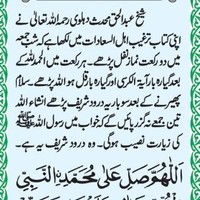 شیخ عبدالحق محدث دہلوی رحمۃ اللہ تعالیٰ نے
اپنی کتاب ترغیب اہل السعادات میں لکھا ہے کہ شب جمعہ
میں دو رکعت نماز نفل پڑھے۔ ہر رکعت میں الحمد للہ کے
بعد گیارہ بار آیۃ الکرسی اور گیارہ بار قل ہو اللہ پڑھے
پھیرنے کے بعد سو بار یہ درود شریف پڑھے انشاء اللہ
تین جمعے نہ گزر پائیں گے کہ خواب میں رسول اللہ ﷺ
کی زیارت نصیب ہوگی۔ وہ درود شریف یہ ہے۔
اَللّٰهُمَّ صَلِّ عَلٰى مُحَمَّدِ النَّبِيِّ